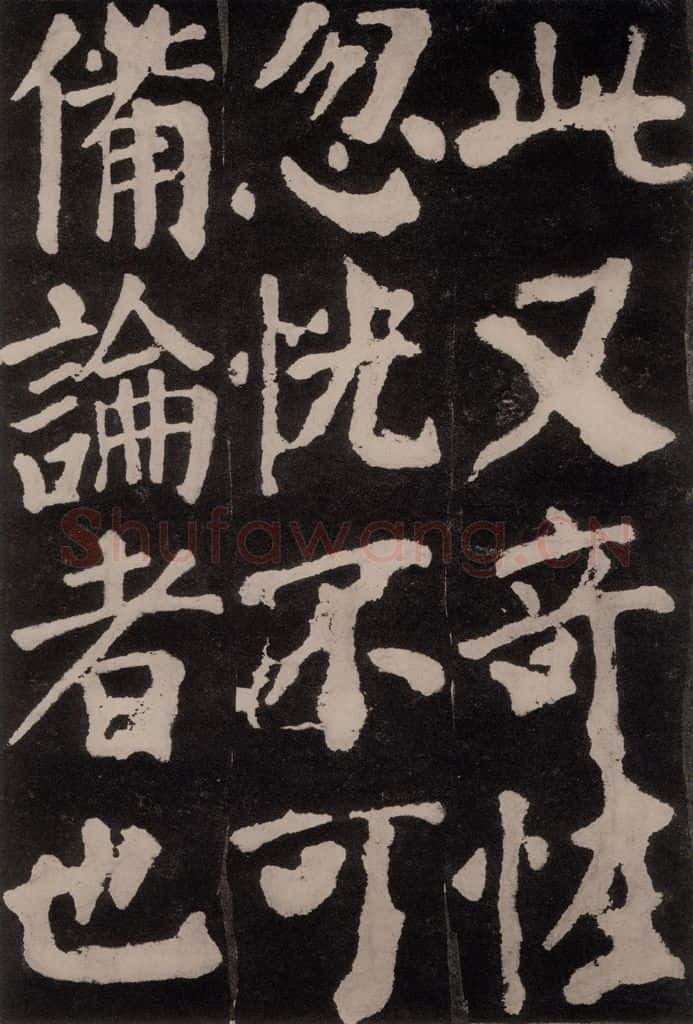 此又奇恠
忽恍不可
備論者也
Shufawang.CN